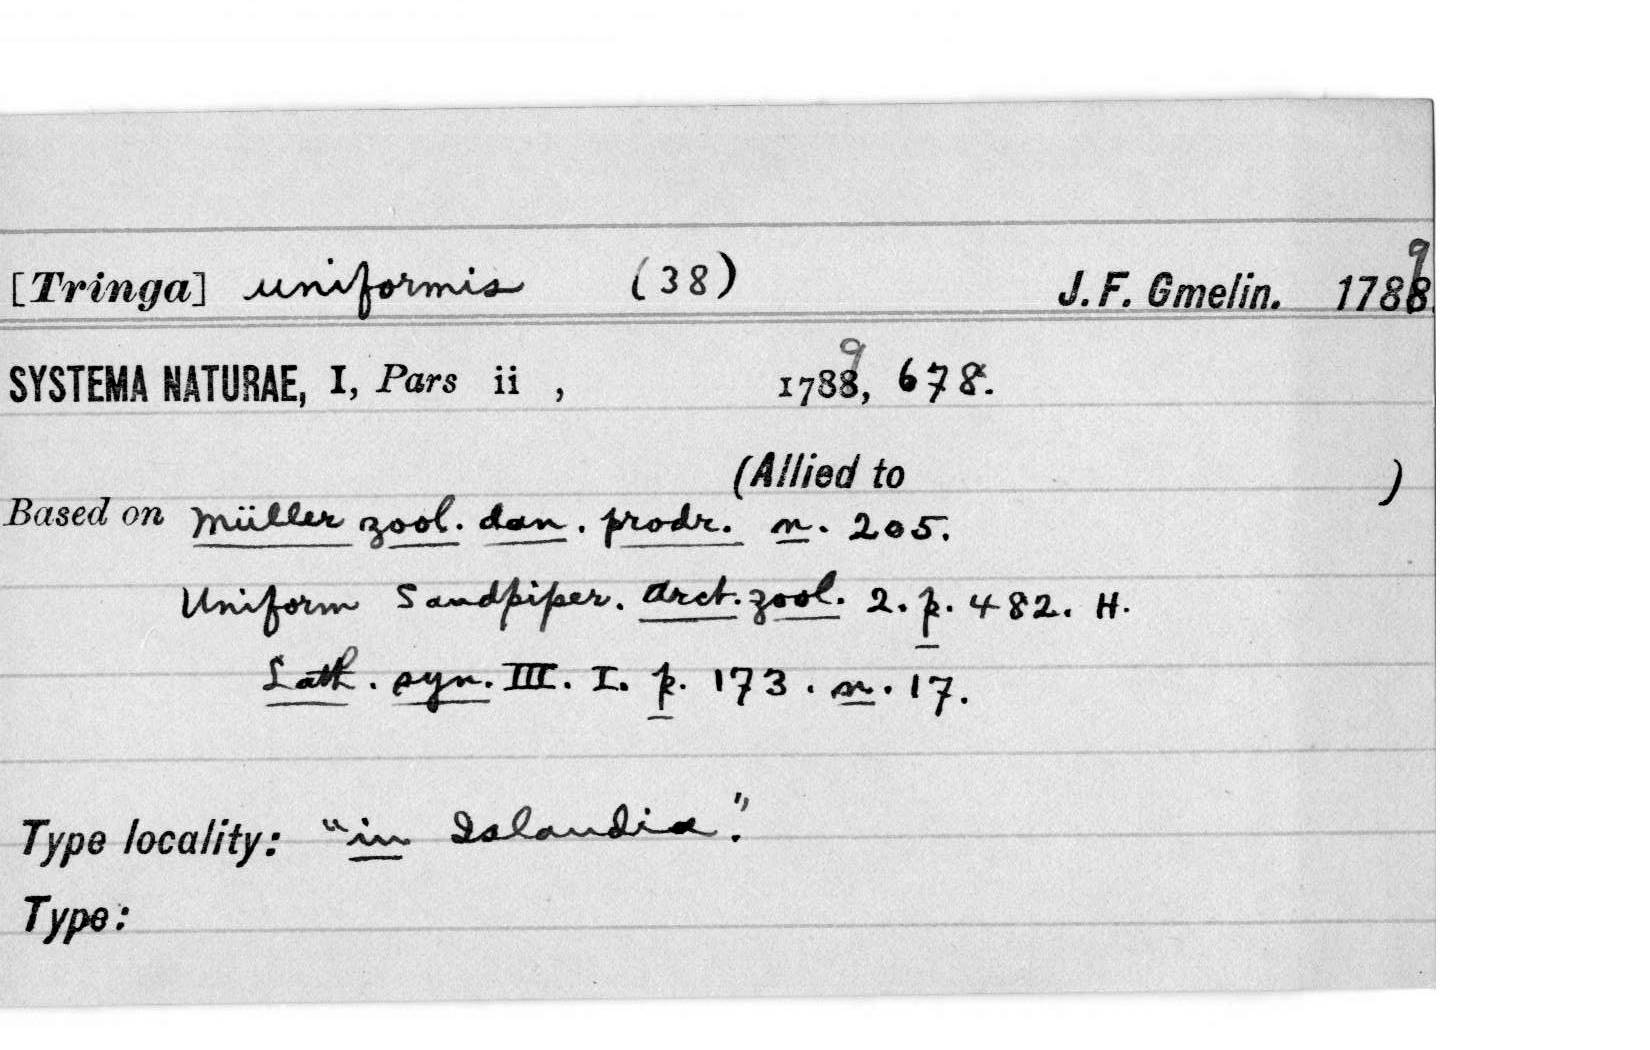 [Tringa] uniformis (38) J. F. Gmelin. 1789
SYSTEMA NATURAE, I, Pars ii , 1789, 678.
(Allied to )
Based on Müller zool. dan. prodr. n. 205.
Uniform Sandpiper. Arct. zool. 2. p. 482. H.
Lath. syn. III. I. p. 173. n. 17.
Type locality: "in Islandia".
Type: